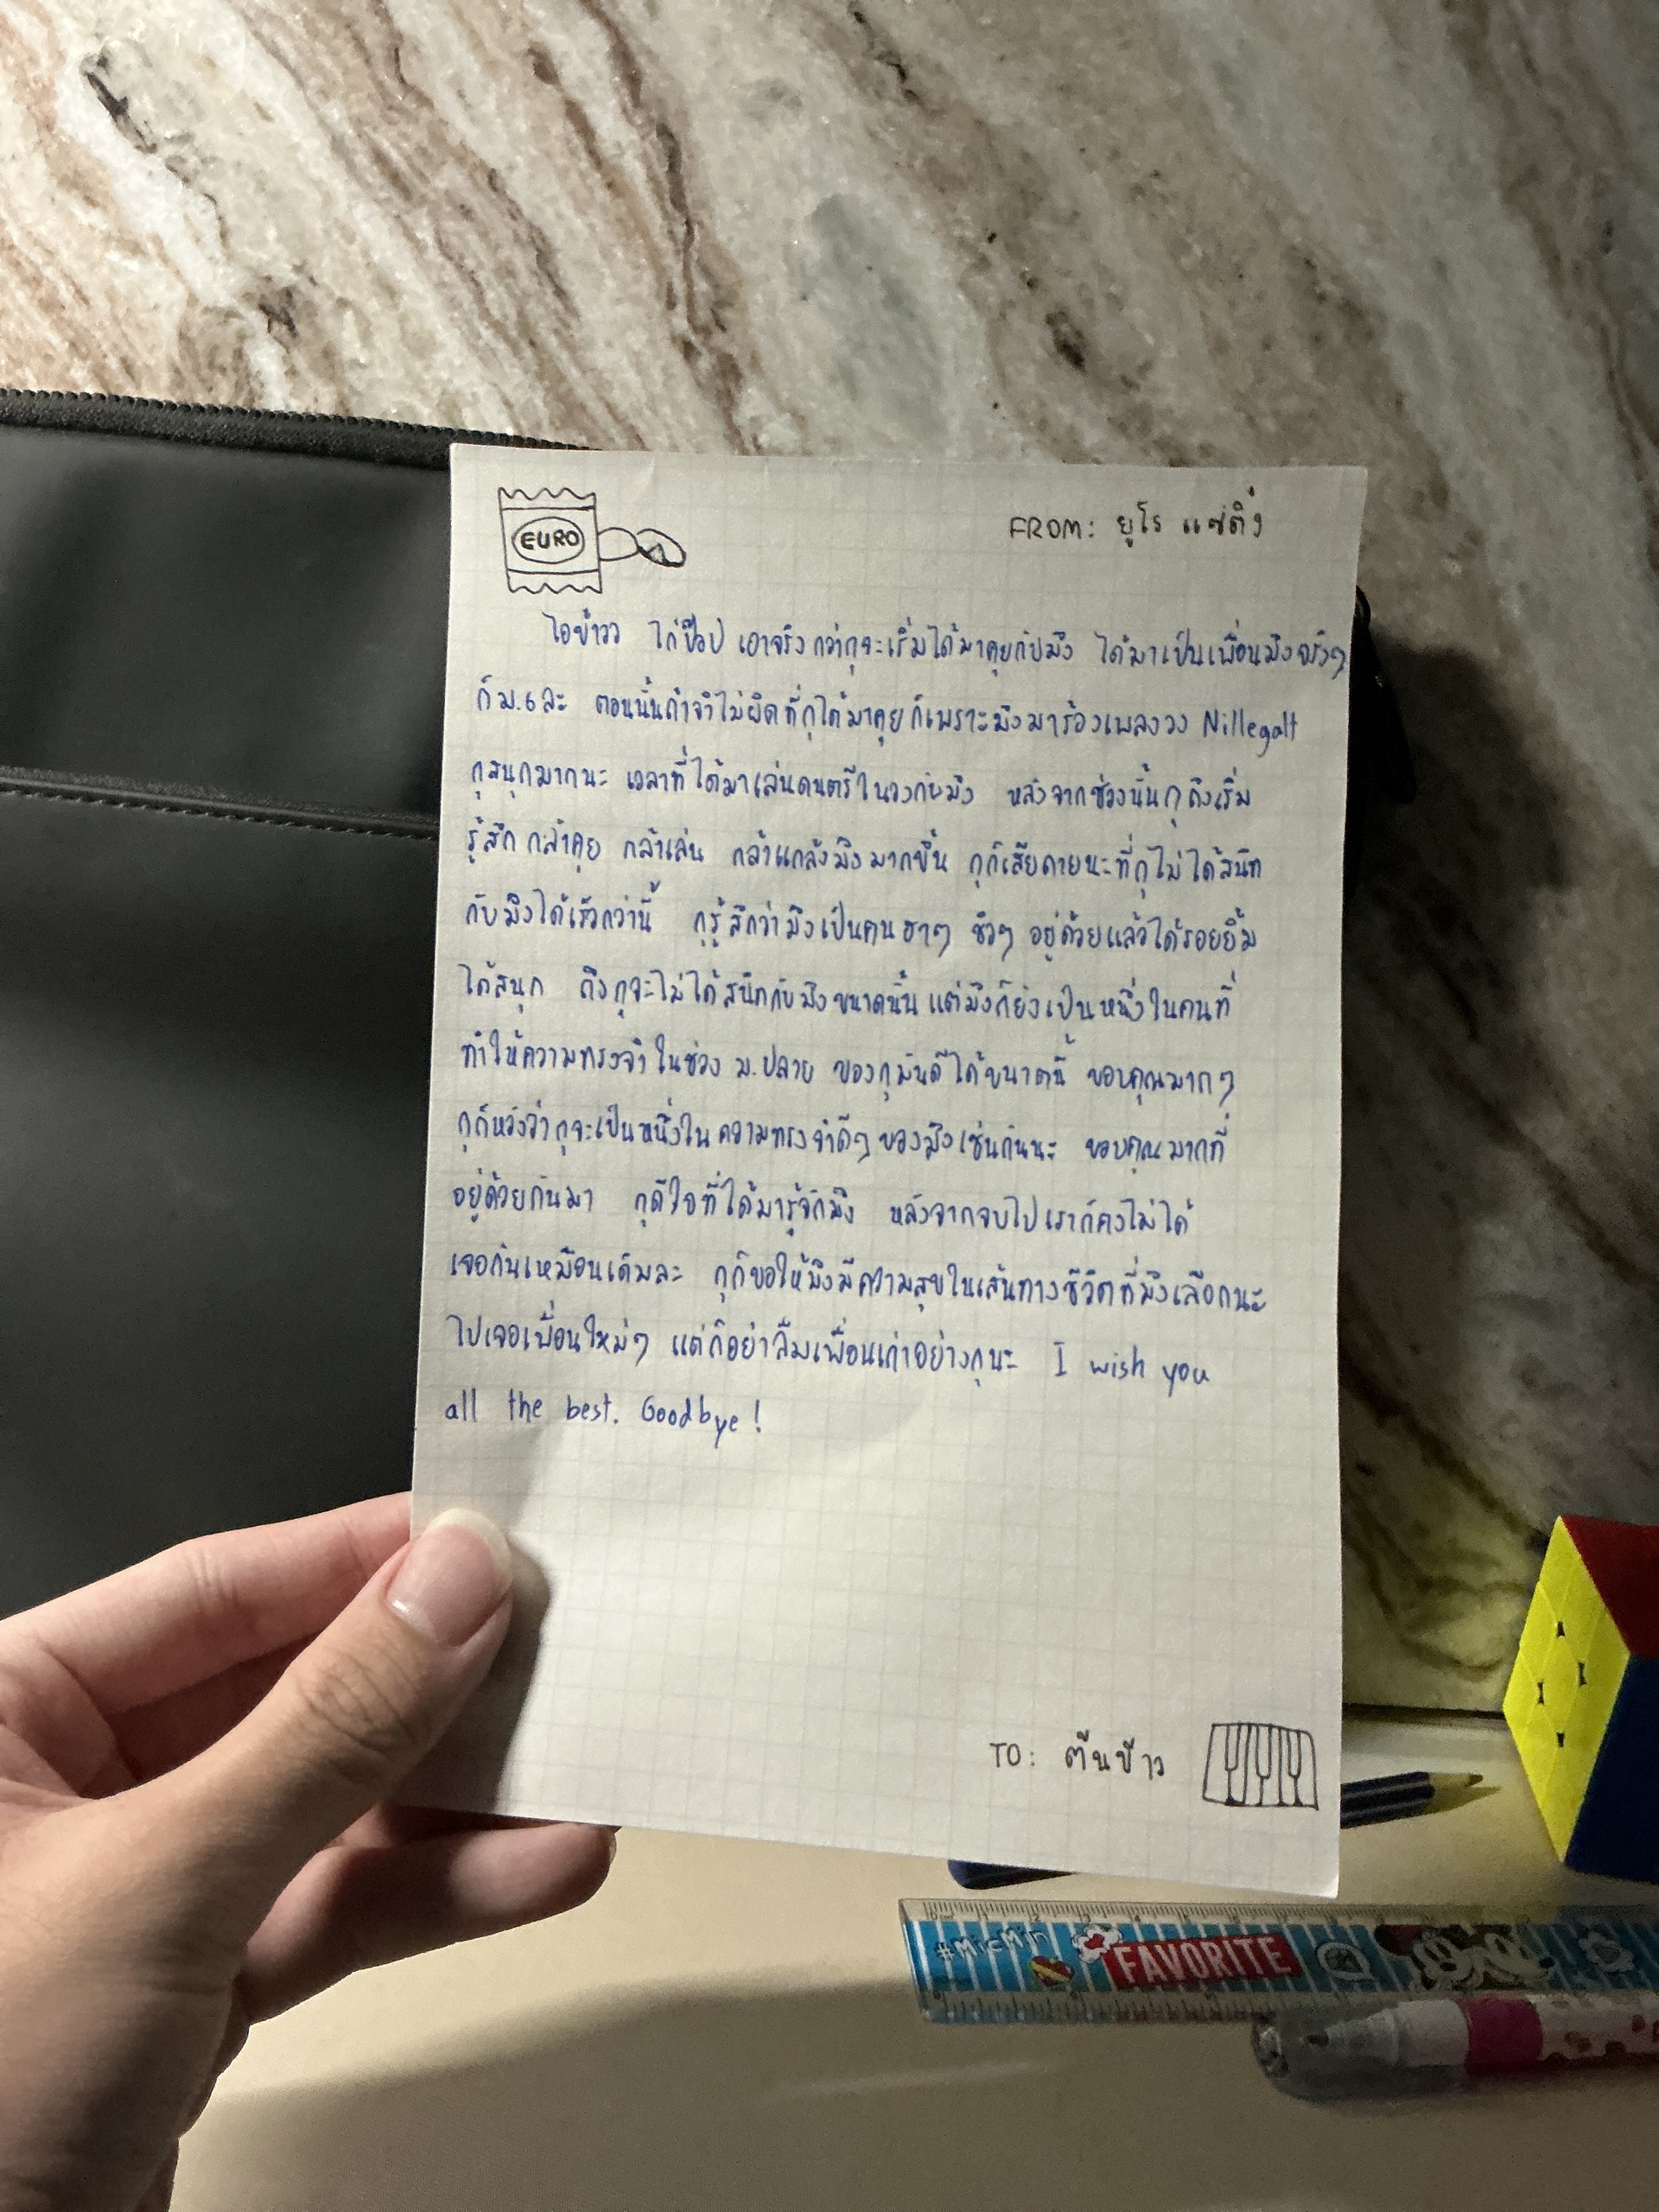 EURO
FROM: ยูโร แซ่ติ่ง
ไอข้าวว ไก่ป๊อป เอาจริงกว่ากูจะเริ่มได้มาคุยกับมึง ได้มาเป็นเพื่อนมึงจริงๆ
ก็ ม.6 ละ ตอนนั้นถ้าจำไม่ผิดที่กูได้มาคุยก็เพราะมึงมาร้องเพลงวง Nillegalt
กูสนุกมากนะ เวลาที่ได้มาเล่นดนตรีในวงกับมึง หลังจากช่วงนั้นกูถึงเริ่ม
รู้สึก กล้าคุย กล้าเล่น กล้าแกล้งมึงมากขึ้น กูก็เสียดายนะที่กูไม่ได้สนิท
กับมึงได้เร็วกว่านี้ กูรู้สึกว่ามึงเป็นคนฮาๆ ชิวๆ อยู่ด้วยแล้วได้รอยยิ้ม
ได้สนุก ถึงกูจะไม่ได้สนิทกับมึงขนาดนั้น แต่มึงก็ยังเป็นหนึ่งในคนที่
ทำให้ความทรงจำในช่วง ม.ปลาย ของกูมันดีได้ขนาดนี้ ขอบคุณมากๆ
กูก็หวังว่ากูจะเป็นหนึ่งในความทรงจำดีๆ ของมึงเช่นกันนะ ขอบคุณมากที่
อยู่ด้วยกันมา กูดีใจที่ได้มารู้จักมึง หลังจากจบไปเราก็คงไม่ได้
เจอกันเหมือนเดิมละ กูก็ขอให้มึงมีความสุขในเส้นทางชีวิตที่มึงเลือกนะ
ไปเจอเพื่อนใหม่ๆ แต่ก็อย่าลืมเพื่อนเก่าอย่างกูนะ I wish you
all the best. Goodbye!
TO: ต้นข้าว
#MicMin
FAVORITE